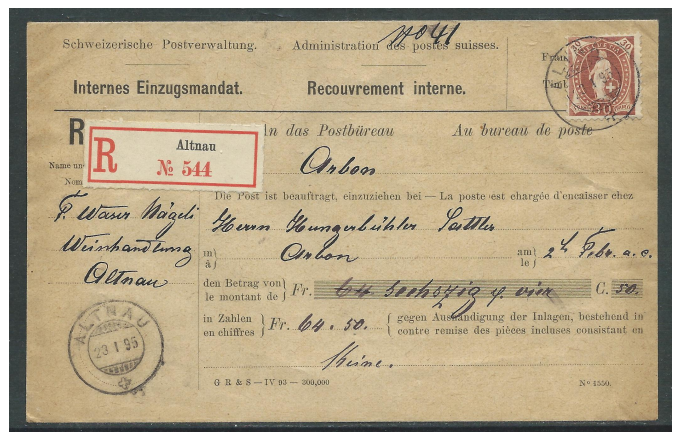 No 41
Schweizerische Postverwaltung. Administration des postes suisses.
Internes Einzugsmandat. Recouvrement interne.
30
R
R Altnau
№ 544
An das Postbüreau Au bureau de poste
Arbon
Name und
Nom
Die Post ist beauftragt, einzuziehen bei — La poste est chargée d'encaisser chez
F. Waser Nägeli
Weinhandlung
Altnau
Herrn Hungerbühler Sattler
in
à
Arbon
am
le
24 Febr. a. c.
den Betrag von
le montant de
Fr. 64 Sechzig u. vier C. 50.
in Zahlen
en chiffres
Fr. 64.50.
gegen Aushändigung der Inlagen, bestehend in
contre remise des pièces incluses consistant en
Keine.
ALTNAU
23. I 95
G R & S — IV 93 — 300,000 Nº 4550.